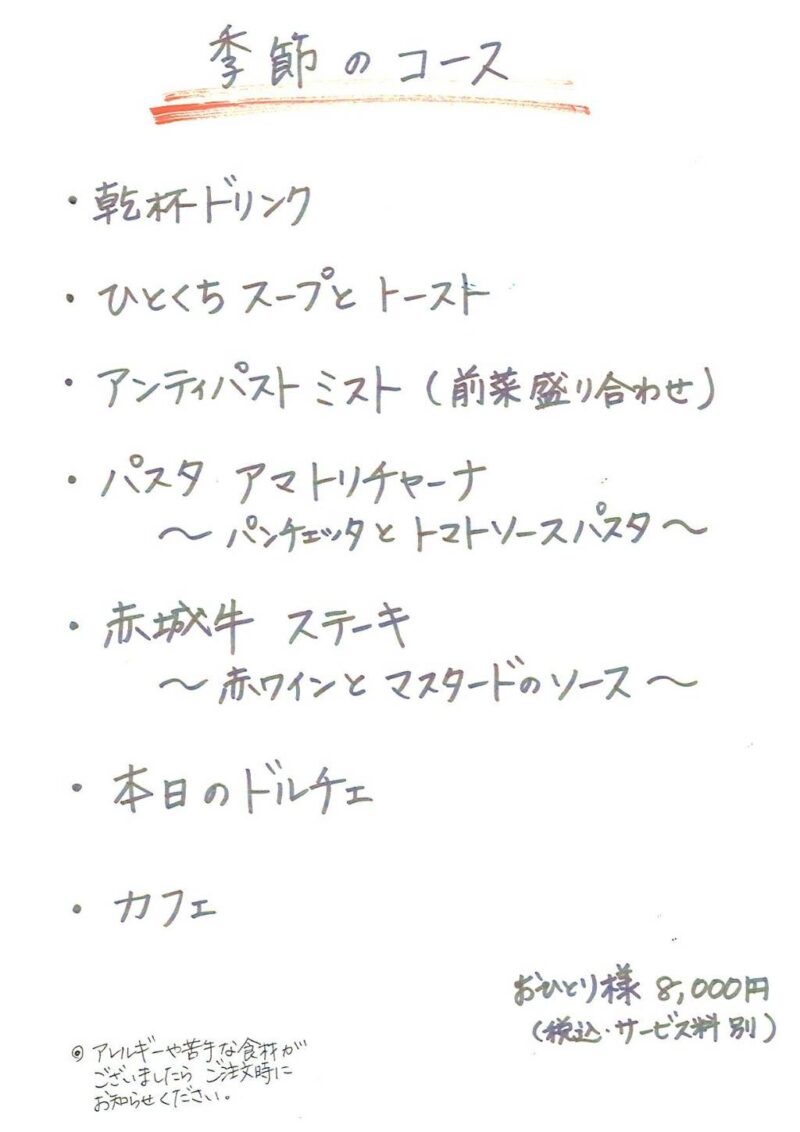 季節のコース
・乾杯ドリンク
・ひとくち スープと トースト
・アンティパスト ミスト（前菜盛り合わせ）
・パスタ アマトリチャーナ
～ パンチェッタと トマトソースパスタ ～
・赤城牛 ステーキ
～ 赤ワインと マスタードのソース ～
・本日のドルチェ
・カフェ
おひとり様 8,000円
（税込・サービス料 別）
◎ アレルギーや苦手な食材が
ございましたら ご注文時に
お知らせください。